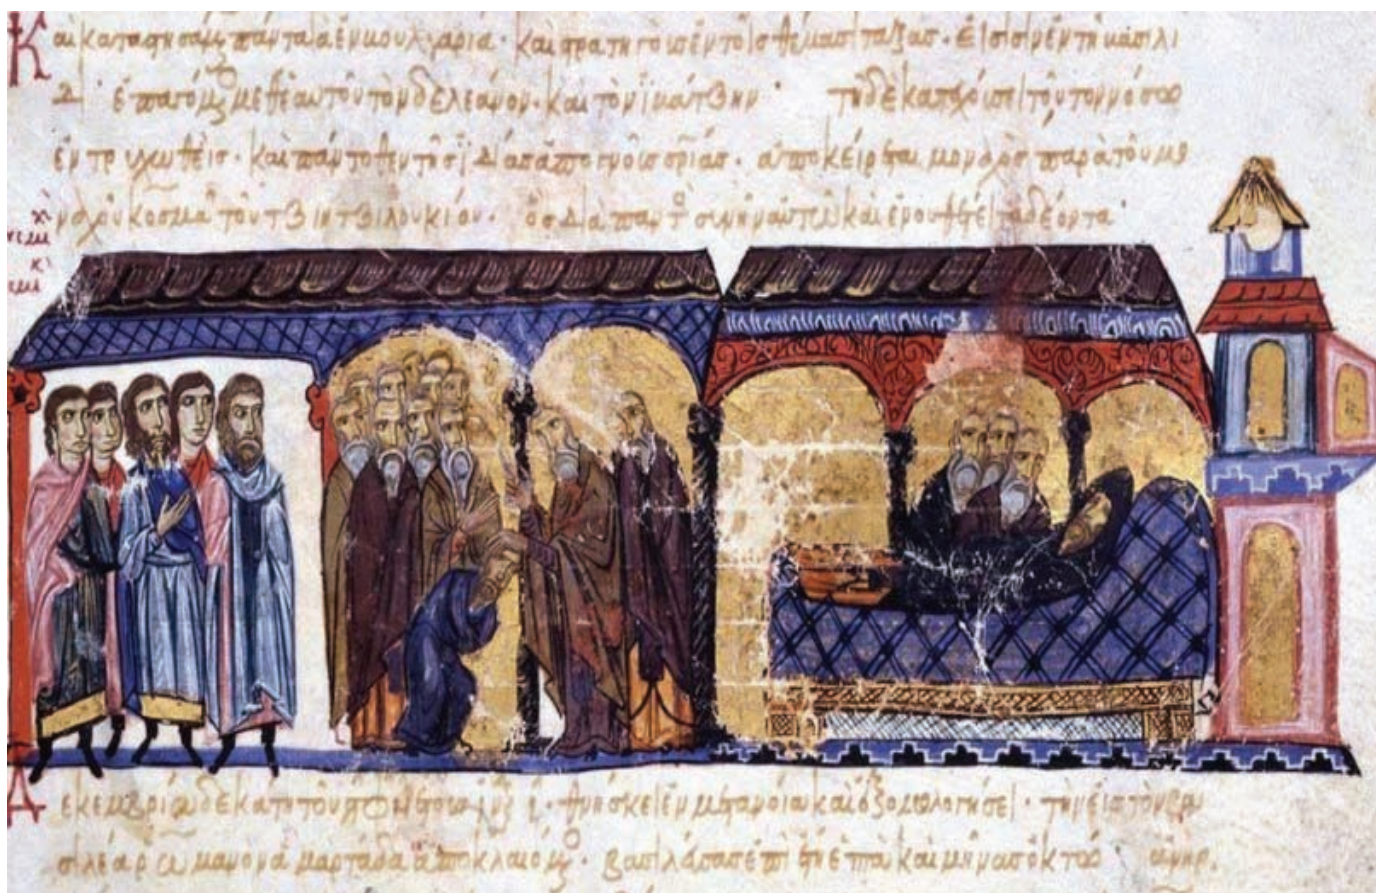 Καὶ καταστήσας πάντα τὰ ἐν βουλγαρία· καὶ στρατηγοὺς ἐν τοῖς θέμασι τάξας· εἴσεισιν ἐν τῆ βασιλί
δι ἐπαγόμενος μεθ' ἑαυτοῦ τὸν δελεάνον· καὶ τὸν ἰβάτζην τῆ δὲ κατεχούση τοῦτον νόσω
ἐντρυχωθεὶς· καὶ πάντοθεν τῆς ἰδίας ἀπογνοὺς σωτηρίας· ἀποκείρεται μοναχὸς παρὰ τοῦ μο
ναχοῦ κοσμᾶ τοῦ τζιντζιλουκίου· ὃς διὰ παντὸς συνῆν αὐτῶ καὶ ἐνουθέτει τὰ δέοντα·
Δεκεμβρίω δεκάτη τοῦ ἔτους θνήσκει ἐν μετανοία καὶ ἐξομολογήσει· τὴν εἰς τὸν βα
σιλέα ῥωμανὸν ἁμαρτάδα ἀποκλαιόμενος· βασιλεύσας ἐπὶ ἔτη ἑπτὰ καὶ μῆνας ὀκτὼ ἀνὴρ